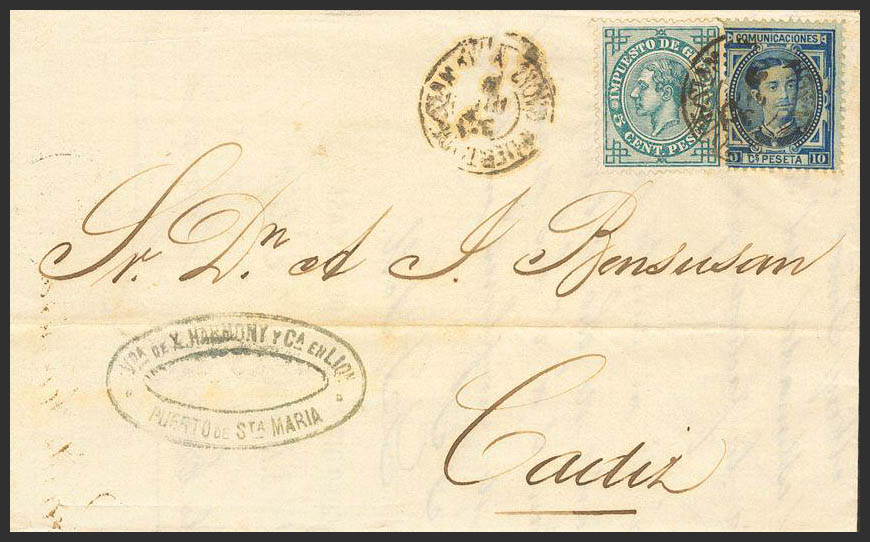 IMPUESTO DE
5 CENT. PES
COMUNICACIONES
Cs PESETA 10
Sr. Dn A J Bensusan
VDA DE X. HARMONY Y CA EN LIQN
PUERTO DE STA MARIA
Cadiz